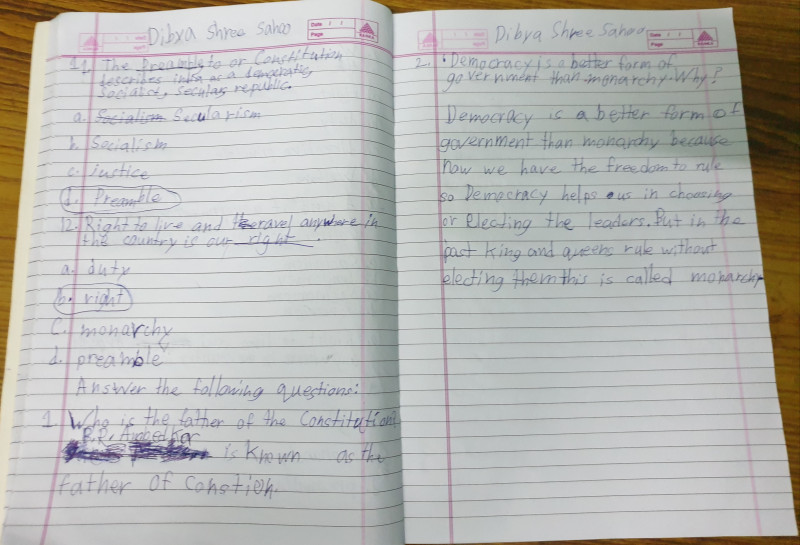 Dibya Shree Sahoo
Date / /
Page
11. The Preamble to or Constitution
describes india as a democratic,
Socialist, Secular republic.
a. Socialism Secularism
b. Socialism
c. justice
d. Preamble
12. Right to live and travel anywhere in
the country is our right.
a. duty
b. right
C. monarchy
d. preamble
Answer the following questions:
1. Who is the father of the Constitution?
is known as the
father of Constion.
Dibya Shree Sahoo
Date / /
Page
2. Democracy is a better form of
government than monarchy. Why?
Democracy is a better form of
government than monarchy because
now we have the freedom to rule
so Democracy helps us in choosing
or Electing the leaders. But in the
past king and queens rule without
electing them this is called monarchy